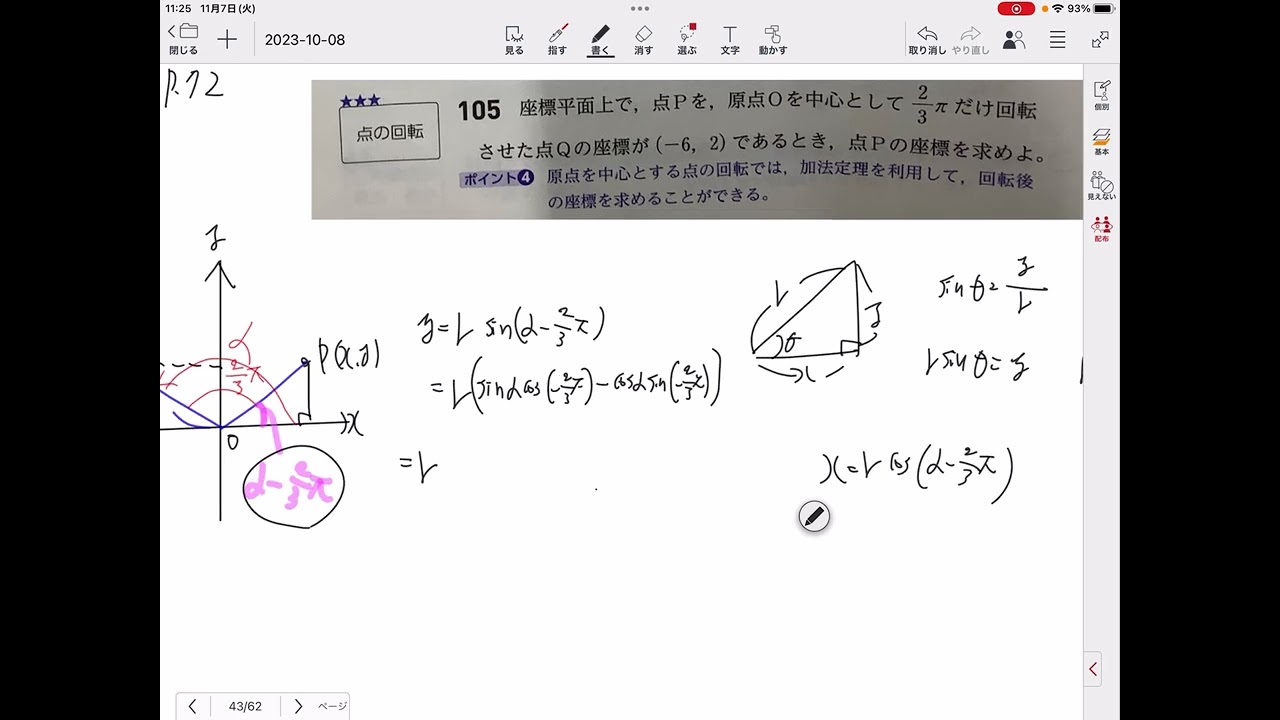 11:25 11月7日(火)
93%
閉じる
2023-10-08
見る 指す 書く 消す 選ぶ 文字 動かす
取り消し やり直し
個別
基本
見えない
配布
P.72
★★★
点の回転
105 座標平面上で,点Pを,原点Oを中心として 2/3 π だけ回転
させた点Qの座標が(−6, 2)であるとき,点Pの座標を求めよ。
ポイント❹ 原点を中心とする点の回転では,加法定理を利用して,回転後
の座標を求めることができる。
y
α
2/3 π
P(x,y)
x
O
α−2/3 π
y=r sin(α−2/3 π)
=r(sinα cos(−2/3 π)−cosα sin(−2/3 π))
=r
r
θ
y
x
sinθ=y/r
r sinθ=y
x=r cos(α−2/3 π)
43/62 ページ